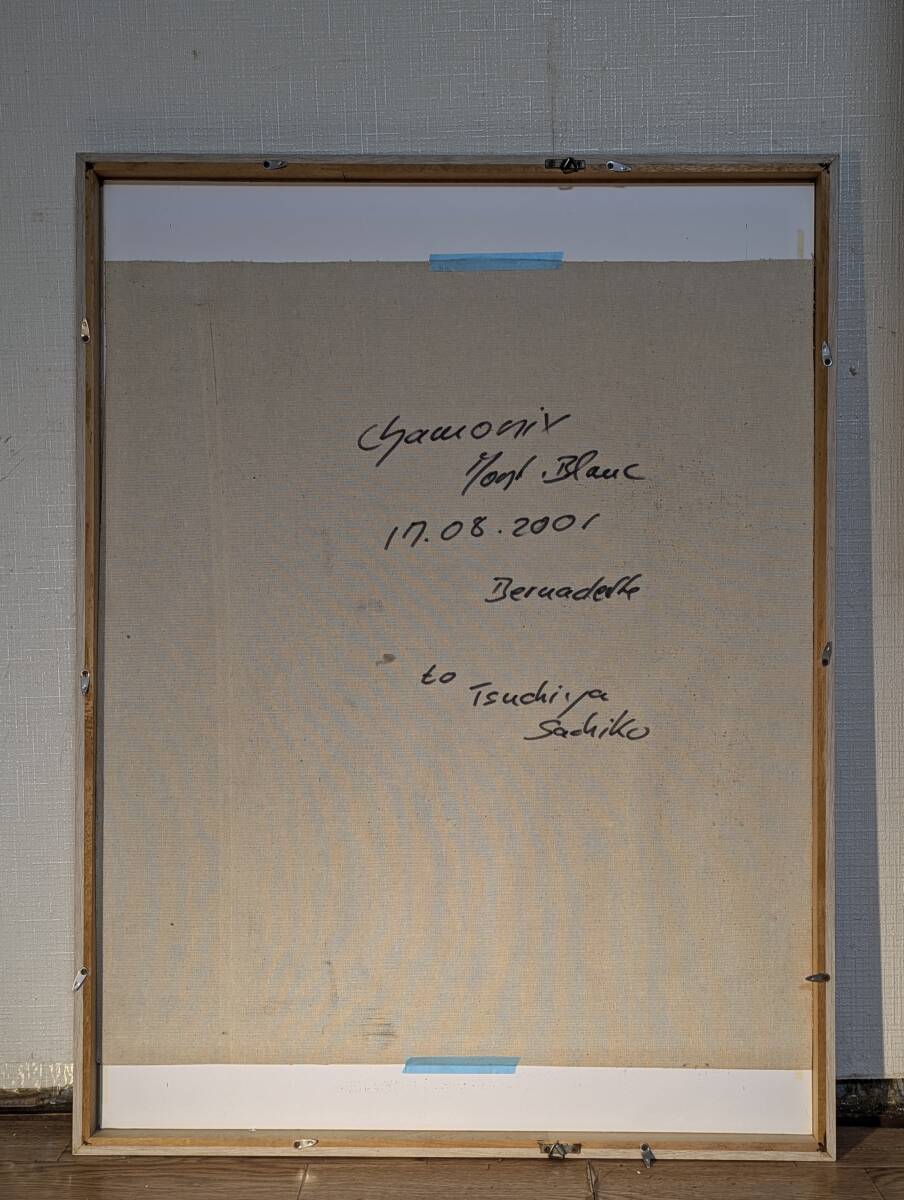 Chamonix
Mont.Blanc
17.08.2001
Bernadette
to
Tsuchiya
Sachiko